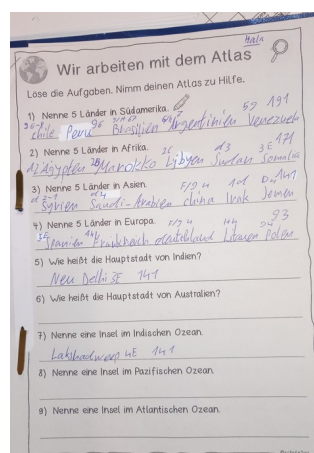 Hala
Wir arbeiten mit dem Atlas
Löse die Aufgaben. Nimm deinen Atlas zu Hilfe.
1) Nenne 5 Länder in Südamerika.
59 191
chile Peru Brasilien Argentinien Venezuela
2) Nenne 5 Länder in Afrika.
171
Ägypten Marokko Libyen Sudan Somalia
3) Nenne 5 Länder in Asien.
141
Syrien Saudi-Arabien china Irak Jemen
4) Nenne 5 Länder in Europa.
93
Spanien Frankreich deutschland Litauen Polen
5) Wie heißt die Hauptstadt von Indien?
Neu Delhi 3E 141
6) Wie heißt die Hauptstadt von Australien?
7) Nenne eine Insel im Indischen Ozean.
Lakshadweep 4E 141
8) Nenne eine Insel im Pazifischen Ozean.
9) Nenne eine Insel im Atlantischen Ozean.